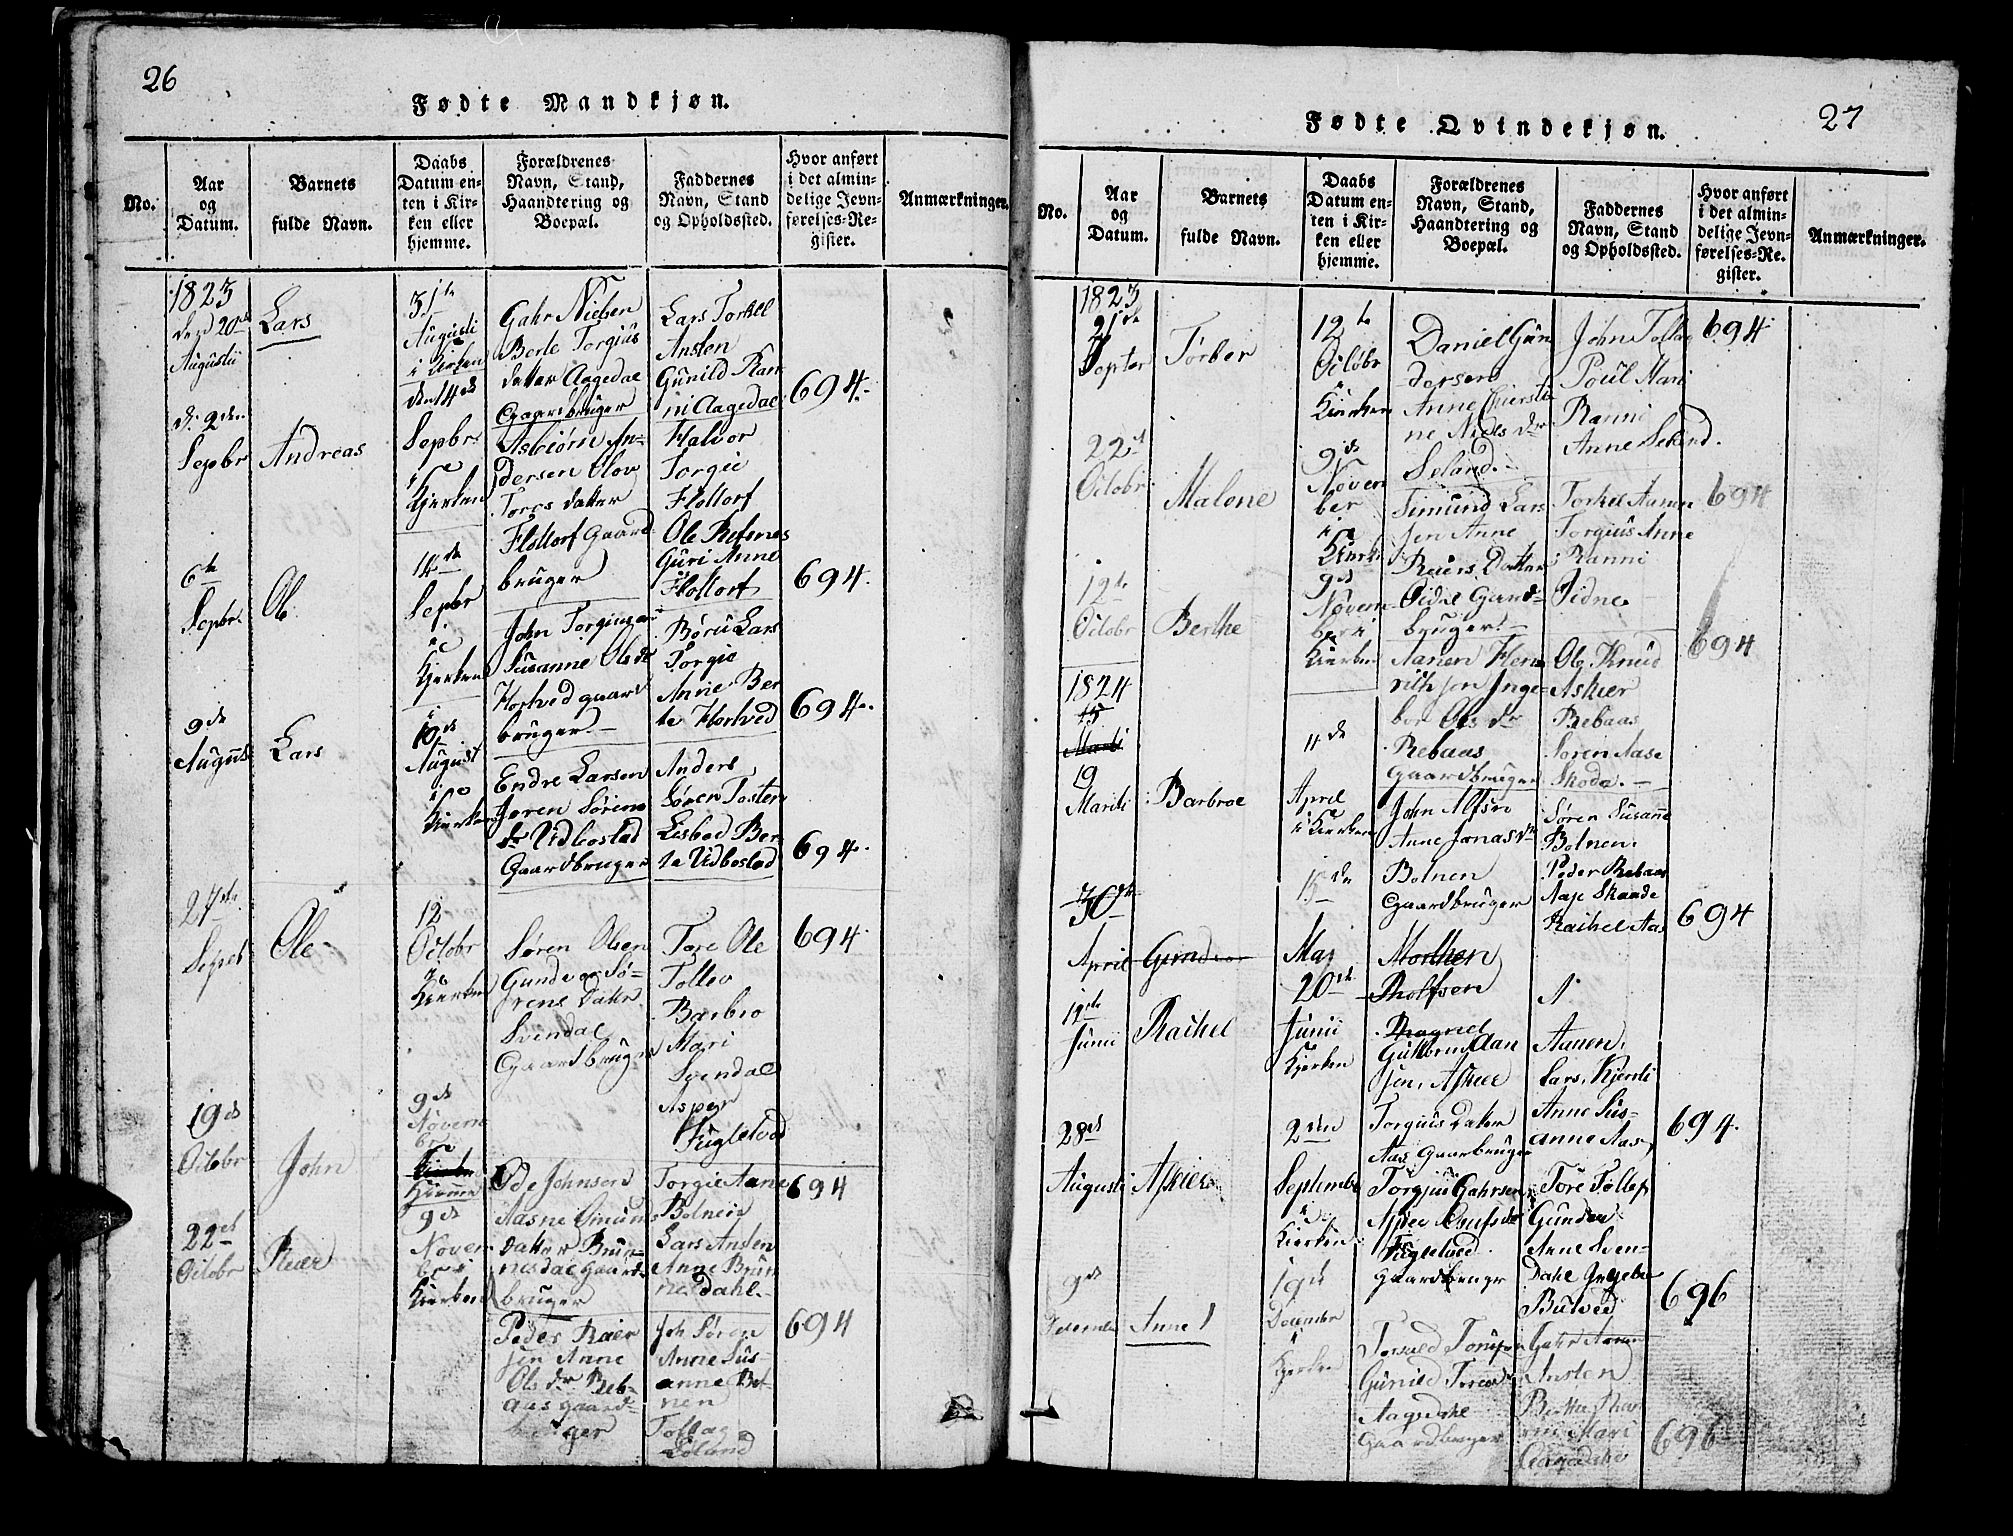 26
Fødte Mandkjøn.
No.
Aar
og
Datum.
Barnets
fulde Navn.
Daabs
Datum en-
ten i Kir-
ken eller
hjemme.
Forældrenes
Navn, Stand,
Haandtering og
Boepæl.
Faddernes
Navn, Stand
og Opholdssted.
Hvor anført
i det almin-
delige Jevn-
førelses-Re-
gister.
Anmærkninger.
1823
den 20de
Augustii
Lars
31te
Augusti
i Kirken
Gahr Nielsen
Berte Torgius
datter Aagedal
Gaardbruger
Lars Torkel
Ansten
Gunild Ran
ni Aagedal
694.
d. 2den
Sepbr
Andreas
den 14de
Sepbr
i
Kjerken
Asbiørn An-
dersen Olov
Tores datter
Flottorf Gaard
bruger
Halvor
Torgie
Flottorf
Ole Refsnes
Guri Anne
Flottorf
694.
6te
Sepbr.
Ole
14de
Sepbr
i
Kjerken
John Torgiusen
Susanne Olsdr
Hortved gaard
bruger
Børu Lars
Torgie
Anne Ber
te Hortved
694.
9de
August
Lars
10de
August
i
Kierken
Endre Larsen
Joren Sørens
dr Udbostad
Gaardbruger
Anders
Søren Tosten
Lisbed Ber
te Udbostad
694.
27de
Sepbr
Ole
12
Octobr
i
Kierken
Søren Olsen
Gundvor Sø-
rens Datr
Svindal
Gaardbruger
Tore Ole
Tollev
Barbro
Mari
Svendal
694.
19de
Octobr
John
9de
Novem
br
Kierken
Ode Johnsen
Aasne Omun
datter Brun-
nesdal Gaard-
bruger
Asper
Fuglelved
Torgie Aanen
Bolnein
Lars Ansten
Anne Brun
nesdahl
694
22de
Octobr
Reier
9de
Novem
br i
Kierken
Peder Reier
sen Anne
Ols dr Reb-
aas gaard-
bruger
Joh Søren
Anne Sus-
anne Bol-
nen
Tollag
Loland
694
27
Fødte Qvindekjøn.
No.
Aar
og
Datum.
Barnets
fulde Navn.
Daabs
Datum en-
ten i Kir-
ken eller
hjemme.
Forældrenes
Navn, Stand,
Haandtering og
Boepæl.
Faddernes
Navn, Stand
og Opholdssted.
Hvor anført
i det almin-
delige Jevn-
førelses-Re-
gister.
Anmærkninger.
1823
21de
Septer
Torbor
12te
Octobr
i
Kierken
Daniel Gun
dersen
Anne Chersti
ne Niels dr
Seland
John Tollag
Poul Mari
Ranni
Anne Seland.
694.
22de
Octobr
Malene
9de
Novem
ber
i
Kierk
Simund Lar
sen Anne
Reiers Datter
Eidne Gaard-
bruger
Torkel Aanen
Torgius Anne
Ranni
Eidne
694
12te
Octobr
Berthe
9de
Novem-
ber i
Kierken
Aanen Hen
rikssen Inge-
bor Ols dr
Rebaas
Gaardbruger
Ole Knud
Askier
Rebaas
Soren Aase
Skoda.
694
1824
15
Marti
19
Marti
Barbroe
4de
April
i Kierken
John Alfsen
Anne Jonas dr
Bolnen
Gaardbruger
Søren Susanne
Bolnen.
Peder Rebaas
Aase Skaade
Rachel Aas
694
30te
April
Gundvor
15de
Maj
Morthen
Rolfsen
Ragnel
12te
Junii
Rachel
20de
Junii
Kjerken
Gutbren Aan
sen, Askiee
Torgius Dater
Aas Gaarbruger
Aanen,
Lars, Kjersti
Anne Sus-
anne Aas
694.
28de
Augusti
Askier
2den
Septembr
i
Kierken
Torgjus Gahrsen
Fuglelved
gaardbruger
Tore Tollef
Gunder
Anne Sven-
Dahl Ingebor
Butved
696
9de
Decembr
Anne 1
19de
December
i
Kjerken
Torvald Tomesen
Gunild Tores dr
Aagedahl
Gaardbruger
Gahr Aanen
Ansten
Berte Ran
ni Mari
Aagedahl
696